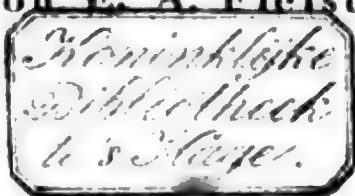 on E. A.
Koninklijke
Bibliotheek
te 's Hage.